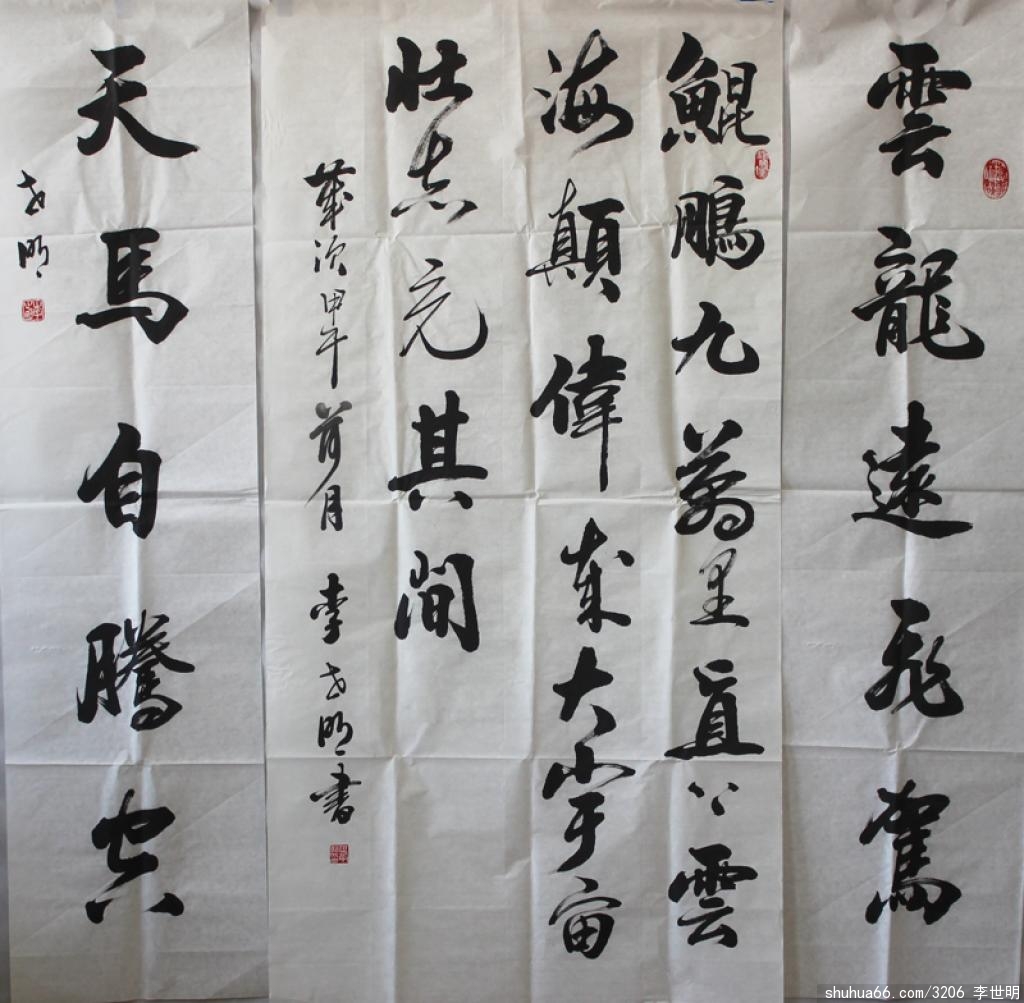 雲龍遠飛駕
鯤鵬九萬里直上雲
海顛偉哉大宇宙
壯志充其間
歲次甲午荷月 李世明書
天馬自騰空
世明
shuhua66.com/3206 李世明